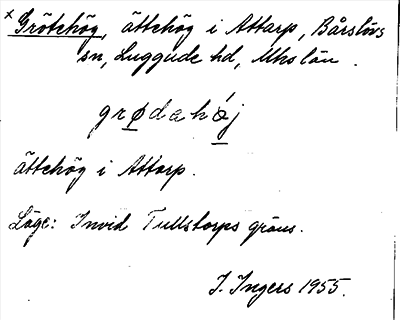 x Grötehög, ättehög i Attarp, Bårslövs
sn, Luggude hd, Mhs län.
grødahǿj
ättehög i Attarp.
Läge: Invid Tullstorps gräns.
I. Ingers 1955.